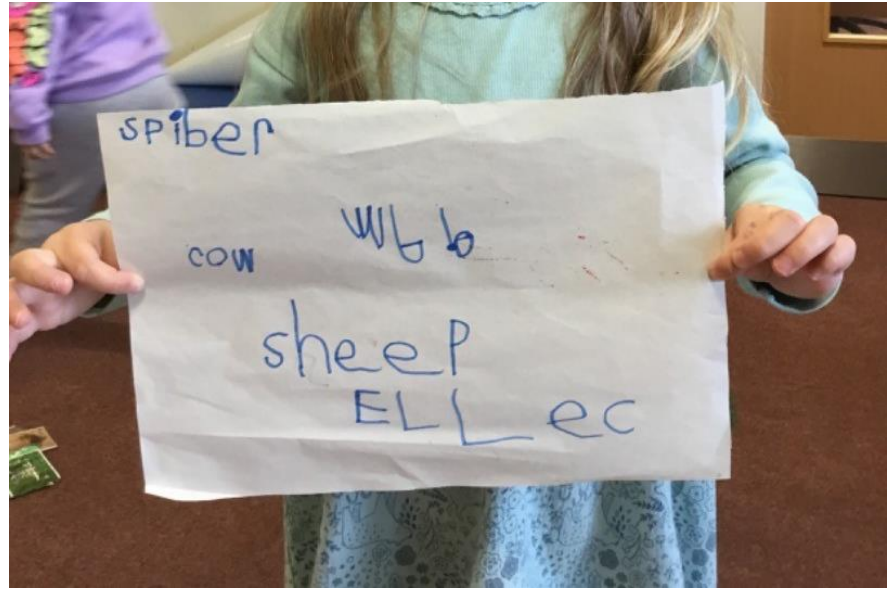 spiber
wbb
cow
sheep
ELL ec